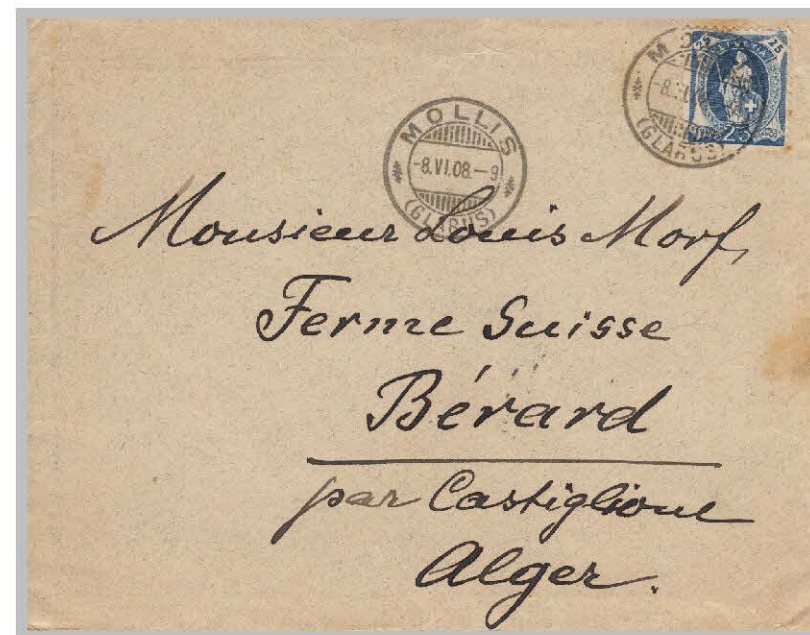 MOLLIS
-8.VI.08.-9
(GLARUS)
25
(GLARUS)
Monsieur Louis Morf,
Ferme Suisse
Bérard
par Castiglione
Alger.